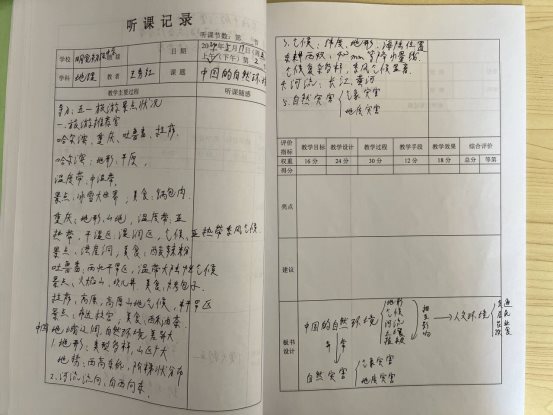 听课记录
听课节数：第 节
学校
日期
2024年5月17日
上午（下午）第2
学科 地理 教者 课题 中国的自然环境
教学主要过程
听课随感
导入：五一旅游景点状况
一、旅游推荐官
哈尔滨、重庆、吐鲁番、拉萨，
哈尔滨：地形：平原，
温度带：中温带，
景点：冰雪大世界，美食：锅包肉
重庆：地形：山地，温度带：亚
热带，干湿区：湿润区，气候：亚热带季风气候
景点：洪崖洞，美食：酸辣粉
吐鲁番：西北干旱区，温带大陆性气候
景点：火焰山、坎儿井 美食：烤包子
拉萨：高原，高原山地气候，半干旱区
景点：布达拉宫 美食：酥油茶
中国地域辽阔，自然环境差异大
1.地形：类型多样，山区广大
地势：西高东低，阶梯状分布
2.河流流向：自西向东
3.气候：纬度、地形、海陆位置
气候复杂多样，季风气候显著
4.河流：长江、黄河
5.自然灾害 气象灾害
地质灾害
评价指标 教学目标 教学设计 教学过程 教学手段 教学效果 综合评价
权重 16分 24分 30分 12分 18分 总分 等第
得分
亮点
建议
板书设计
中国的自然环境 地形 气候 河流 土壤 植被 相互影响 人文环境
自然灾害 气象灾害
地质灾害